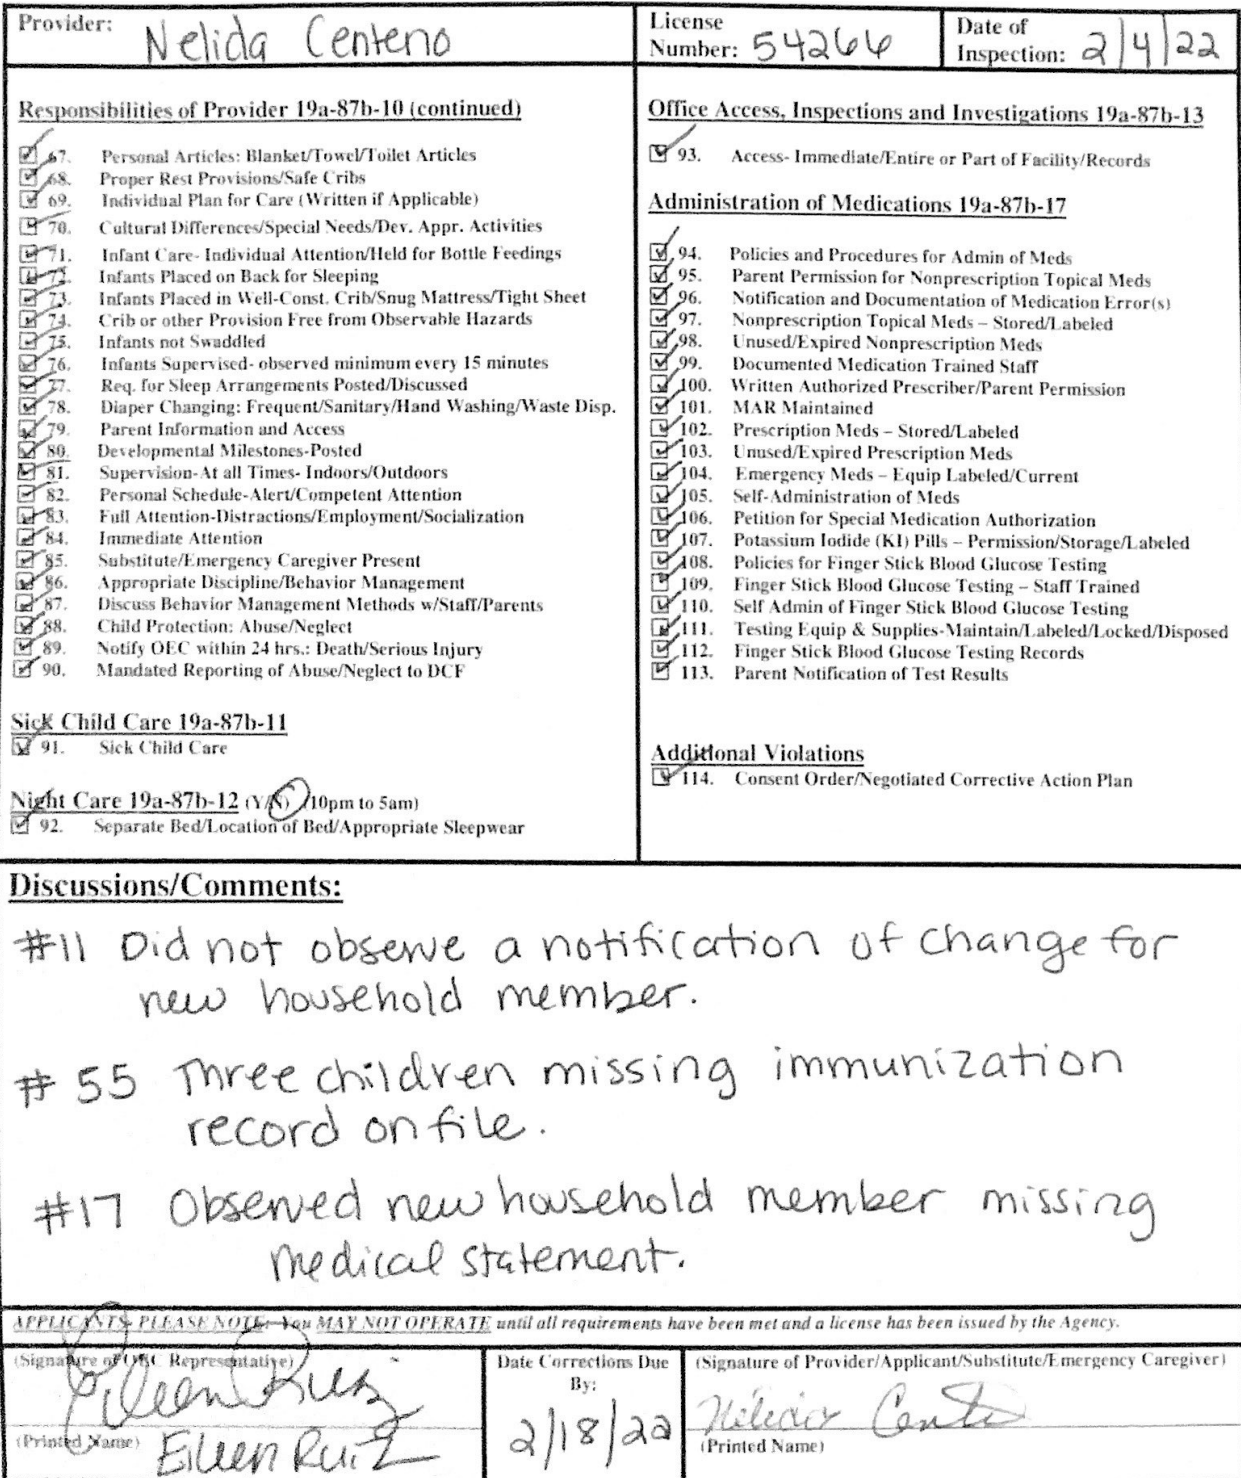 Provider: Nelida Centeno
License Number: 54266
Date of Inspection: 2/4/22
Responsibilities of Provider 19a-87b-10 (continued)
67. Personal Articles: Blanket/Towel/Toilet Articles
68. Proper Rest Provisions/Safe Cribs
69. Individual Plan for Care (Written if Applicable)
70. Cultural Differences/Special Needs/Dev. Appr. Activities
71. Infant Care- Individual Attention/Held for Bottle Feedings
72. Infants Placed on Back for Sleeping
73. Infants Placed in Well-Const. Crib/Snug Mattress/Tight Sheet
74. Crib or other Provision Free from Observable Hazards
75. Infants not Swaddled
76. Infants Supervised- observed minimum every 15 minutes
77. Req. for Sleep Arrangements Posted/Discussed
78. Diaper Changing: Frequent/Sanitary/Hand Washing/Waste Disp.
79. Parent Information and Access
80. Developmental Milestones-Posted
81. Supervision-At all Times- Indoors/Outdoors
82. Personal Schedule-Alert/Competent Attention
83. Full Attention-Distractions/Employment/Socialization
84. Immediate Attention
85. Substitute/Emergency Caregiver Present
86. Appropriate Discipline/Behavior Management
87. Discuss Behavior Management Methods w/Staff/Parents
88. Child Protection: Abuse/Neglect
89. Notify OEC within 24 hrs.: Death/Serious Injury
90. Mandated Reporting of Abuse/Neglect to DCF
Sick Child Care 19a-87b-11
91. Sick Child Care
Night Care 19a-87b-12 (Y/N) (10pm to 5am)
92. Separate Bed/Location of Bed/Appropriate Sleepwear
Office Access, Inspections and Investigations 19a-87b-13
93. Access- Immediate/Entire or Part of Facility/Records
Administration of Medications 19a-87b-17
94. Policies and Procedures for Admin of Meds
95. Parent Permission for Nonprescription Topical Meds
96. Notification and Documentation of Medication Error(s)
97. Nonprescription Topical Meds – Stored/Labeled
98. Unused/Expired Nonprescription Meds
99. Documented Medication Trained Staff
100. Written Authorized Prescriber/Parent Permission
101. MAR Maintained
102. Prescription Meds – Stored/Labeled
103. Unused/Expired Prescription Meds
104. Emergency Meds – Equip Labeled/Current
105. Self-Administration of Meds
106. Petition for Special Medication Authorization
107. Potassium Iodide (KI) Pills – Permission/Storage/Labeled
108. Policies for Finger Stick Blood Glucose Testing
109. Finger Stick Blood Glucose Testing – Staff Trained
110. Self Admin of Finger Stick Blood Glucose Testing
111. Testing Equip & Supplies-Maintain/Labeled/Locked/Disposed
112. Finger Stick Blood Glucose Testing Records
113. Parent Notification of Test Results
Additional Violations
114. Consent Order/Negotiated Corrective Action Plan
Discussions/Comments:
#11 Did not observe a notification of change for
new household member.
# 55 Three children missing immunization
record on file.
#17 Observed new household member missing
medical statement.
APPLICANTS- PLEASE NOTE: You MAY NOT OPERATE until all requirements have been met and a license has been issued by the Agency.
(Signature of OEC Representative)
Eileen Ruiz
(Printed Name) Eileen Ruiz
Date Corrections Due
By:
2/18/22
(Signature of Provider/Applicant/Substitute/Emergency Caregiver)
(Printed Name)